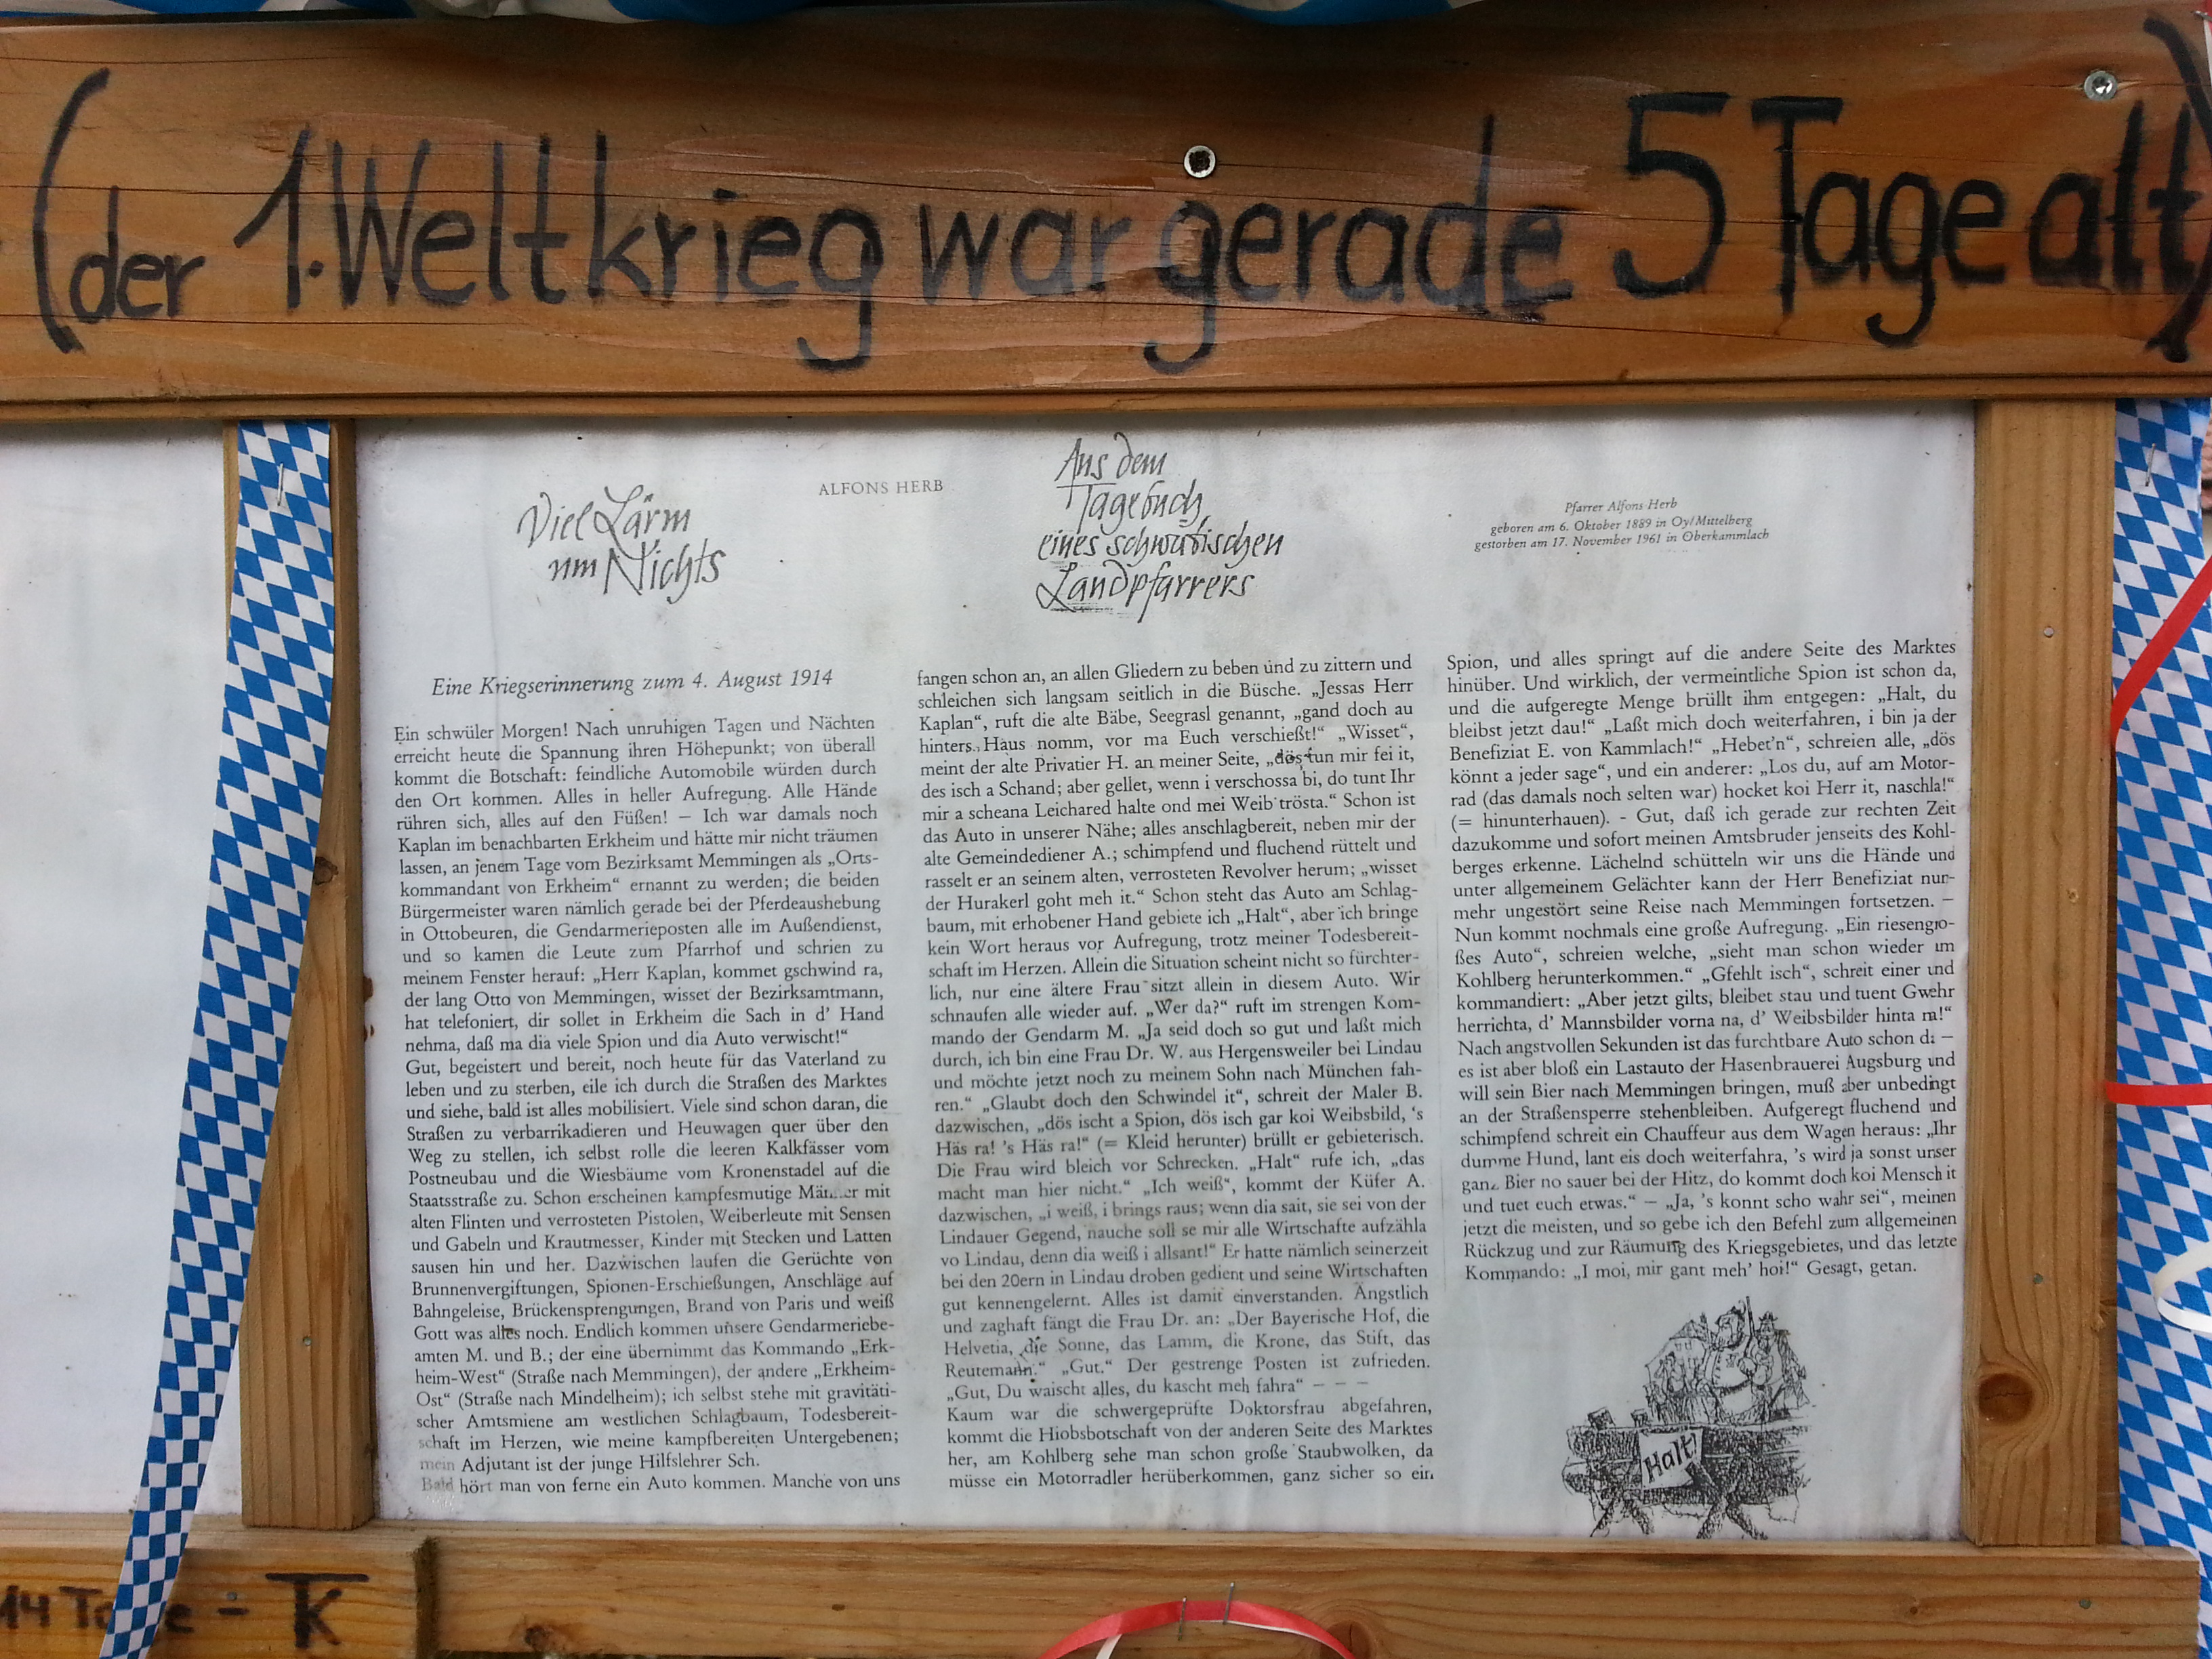 (der 1. Weltkrieg war gerade 5 Tage alt)
Viel Lärm
um Nichts
ALFONS HERB
Aus dem
Tagebuch
eines schwäbischen
Landpfarrers
Pfarrer Alfons Herb
geboren am 6. Oktober 1889 in Oy/Mittelberg
gestorben am 17. November 1961 in Oberkammlach
Eine Kriegserinnerung zum 4. August 1914
Ein schwüler Morgen! Nach unruhigen Tagen und Nächten
erreicht heute die Spannung ihren Höhepunkt; von überall
kommt die Botschaft: feindliche Automobile würden durch
den Ort kommen. Alles in heller Aufregung. Alle Hände
rühren sich, alles auf den Füßen! — Ich war damals noch
Kaplan im benachbarten Erkheim und hätte mir nicht träumen
lassen, an jenem Tage vom Bezirksamt Memmingen als „Orts-
kommandant von Erkheim“ ernannt zu werden; die beiden
Bürgermeister waren nämlich gerade bei der Pferdeaushebung
in Ottobeuren, die Gendarmerieposten alle im Außendienst,
und so kamen die Leute zum Pfarrhof und schrien zu
meinem Fenster herauf: „Herr Kaplan, kommet gschwind ra,
der lang Otto von Memmingen, wisset der Bezirksamtmann,
hat telefoniert, dir sollet in Erkheim die Sach in d' Hand
nehma, daß ma dia viele Spion und dia Auto verwischt!“
Gut, begeistert und bereit, noch heute für das Vaterland zu
leben und zu sterben, eile ich durch die Straßen des Marktes
und siehe, bald ist alles mobilisiert. Viele sind schon daran, die
Straßen zu verbarrikadieren und Heuwagen quer über den
Weg zu stellen, ich selbst rolle die leeren Kalkfässer vom
Postneubau und die Wiesbäume vom Kronenstadel auf die
Staatsstraße zu. Schon erscheinen kampfesmutige Männer mit
alten Flinten und verrosteten Pistolen, Weiberleute mit Sensen
und Gabeln und Krautmesser, Kinder mit Stecken und Latten
sausen hin und her. Dazwischen laufen die Gerüchte von
Brunnenvergiftungen, Spionen-Erschießungen, Anschläge auf
Bahngeleise, Brückensprengungen, Brand von Paris und weiß
Gott was alles noch. Endlich kommen unsere Gendarmeriebe-
amten M. und B.; der eine übernimmt das Kommando „Erk-
heim-West“ (Straße nach Memmingen), der andere „Erkheim-
Ost“ (Straße nach Mindelheim); ich selbst stehe mit gravitäti-
scher Amtsmiene am westlichen Schlagbaum, Todesbereit-
schaft im Herzen, wie meine kampfbereiten Untergebenen;
mein Adjutant ist der junge Hilfslehrer Sch.
Bald hört man von ferne ein Auto kommen. Manche von uns
fangen schon an, an allen Gliedern zu beben und zu zittern und
schleichen sich langsam seitlich in die Büsche. „Jessas Herr
Kaplan“, ruft die alte Bäbe, Seegrasl genannt, „gand doch au
hinters Haus nomm, vor ma Euch verschießt!“ „Wisset“,
meint der alte Privatier H. an meiner Seite, „dös tun mir fei it,
des isch a Schand; aber gellet, wenn i verschossa bi, do tunt Ihr
mir a scheana Leichared halte ond mei Weib trösta.“ Schon ist
das Auto in unserer Nähe; alles anschlagbereit, neben mir der
alte Gemeindediener A.; schimpfend und fluchend rüttelt und
rasselt er an seinem alten, verrosteten Revolver herum; „wisset
der Hurakerl goht meh it.“ Schon steht das Auto am Schlag-
baum, mit erhobener Hand gebiete ich „Halt“, aber ich bringe
kein Wort heraus vor Aufregung, trotz meiner Todesbereit-
schaft im Herzen. Allein die Situation scheint nicht so fürchter-
lich, nur eine ältere Frau sitzt allein in diesem Auto. Wir
schnaufen alle wieder auf. „Wer da?“ ruft im strengen Kom-
mando der Gendarm M. „Ja seid doch so gut und laßt mich
durch, ich bin eine Frau Dr. W. aus Hergensweiler bei Lindau
und möchte jetzt noch zu meinem Sohn nach München fah-
ren.“ „Glaubt doch den Schwindel it“, schreit der Maler B.
dazwischen, „dös ischt a Spion, dös isch gar koi Weibsbild, 's
Häs ra! 's Häs ra!“ (= Kleid herunter) brüllt er gebieterisch.
Die Frau wird bleich vor Schrecken. „Halt“ rufe ich, „das
macht man hier nicht.“ „Ich weiß“, kommt der Küfer A.
dazwischen, „i weiß, i brings raus; wenn dia sait, sie sei von der
Lindauer Gegend, nauche soll se mir alle Wirtschafte aufzähla
vo Lindau, denn dia weiß i allsant!“ Er hatte nämlich seinerzeit
bei den 20ern in Lindau droben gedient und seine Wirtschaften
gut kennengelernt. Alles ist damit einverstanden. Ängstlich
und zaghaft fängt die Frau Dr. an: „Der Bayerische Hof, die
Helvetia, die Sonne, das Lamm, die Krone, das Stift, das
Reutemann.“ „Gut.“ Der gestrenge Posten ist zufrieden.
„Gut, Du waischt alles, du kascht meh fahra“ — — —
Kaum war die schwergeprüfte Doktorsfrau abgefahren,
kommt die Hiobsbotschaft von der anderen Seite des Marktes
her, am Kohlberg sehe man schon große Staubwolken, da
müsse ein Motorradler herüberkommen, ganz sicher so ein
Spion, und alles springt auf die andere Seite des Marktes
hinüber. Und wirklich, der vermeintliche Spion ist schon da,
und die aufgeregte Menge brüllt ihm entgegen: „Halt, du
bleibst jetzt dau!“ „Laßt mich doch weiterfahren, i bin ja der
Benefiziat E. von Kammlach!“ „Hebet'n“, schreien alle, „dös
könnt a jeder sage“, und ein anderer: „Los du, auf am Motor-
rad (das damals noch selten war) hocket koi Herr it, naschla!“
(= hinunterhauen). - Gut, daß ich gerade zur rechten Zeit
dazukomme und sofort meinen Amtsbruder jenseits des Kohl-
berges erkenne. Lächelnd schütteln wir uns die Hände und
unter allgemeinem Gelächter kann der Herr Benefiziat nun-
mehr ungestört seine Reise nach Memmingen fortsetzen. —
Nun kommt nochmals eine große Aufregung. „Ein riesengro-
ßes Auto“, schreien welche, „sieht man schon wieder im
Kohlberg herunterkommen.“ „Gfehlt isch“, schreit einer und
kommandiert: „Aber jetzt gilts, bleibet stau und tuent Gwehr
herrichta, d' Mannsbilder vorna na, d' Weibsbilder hinta na!“
Nach angstvollen Sekunden ist das furchtbare Auto schon da —
es ist aber bloß ein Lastauto der Hasenbrauerei Augsburg und
will sein Bier nach Memmingen bringen, muß aber unbedingt
an der Straßensperre stehenbleiben. Aufgeregt fluchend und
schimpfend schreit ein Chauffeur aus dem Wagen heraus: „Ihr
dumme Hund, lant eis doch weiterfahra, 's wird ja sonst unser
ganz Bier no sauer bei der Hitz, do kommt doch koi Mensch it
und tuet euch etwas.“ — „Ja, 's konnt scho wahr sei“, meinen
jetzt die meisten, und so gebe ich den Befehl zum allgemeinen
Rückzug und zur Räumung des Kriegsgebietes, und das letzte
Kommando: „I moi, mir gant meh' hoi!“ Gesagt, getan.
Halt!
14 - TK